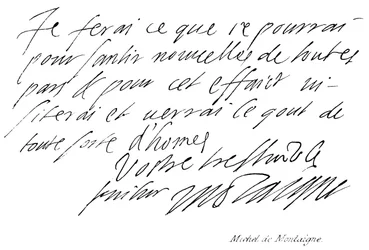 Je ferai ce que ie pourrai
pour santir nouvelles de toutes
pars & pour cet effaict vi-
siterai et verrai ce gout de
toute sorte d'homes
Vostre treshumble
servitur Montaigne
Michel de Montaigne.